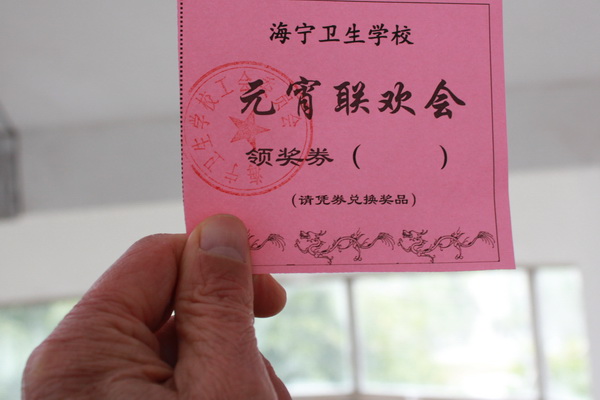 海宁卫生学校
元宵联欢会
领奖券（　　）
（请凭券兑换奖品）
海宁卫生学校工会委员会